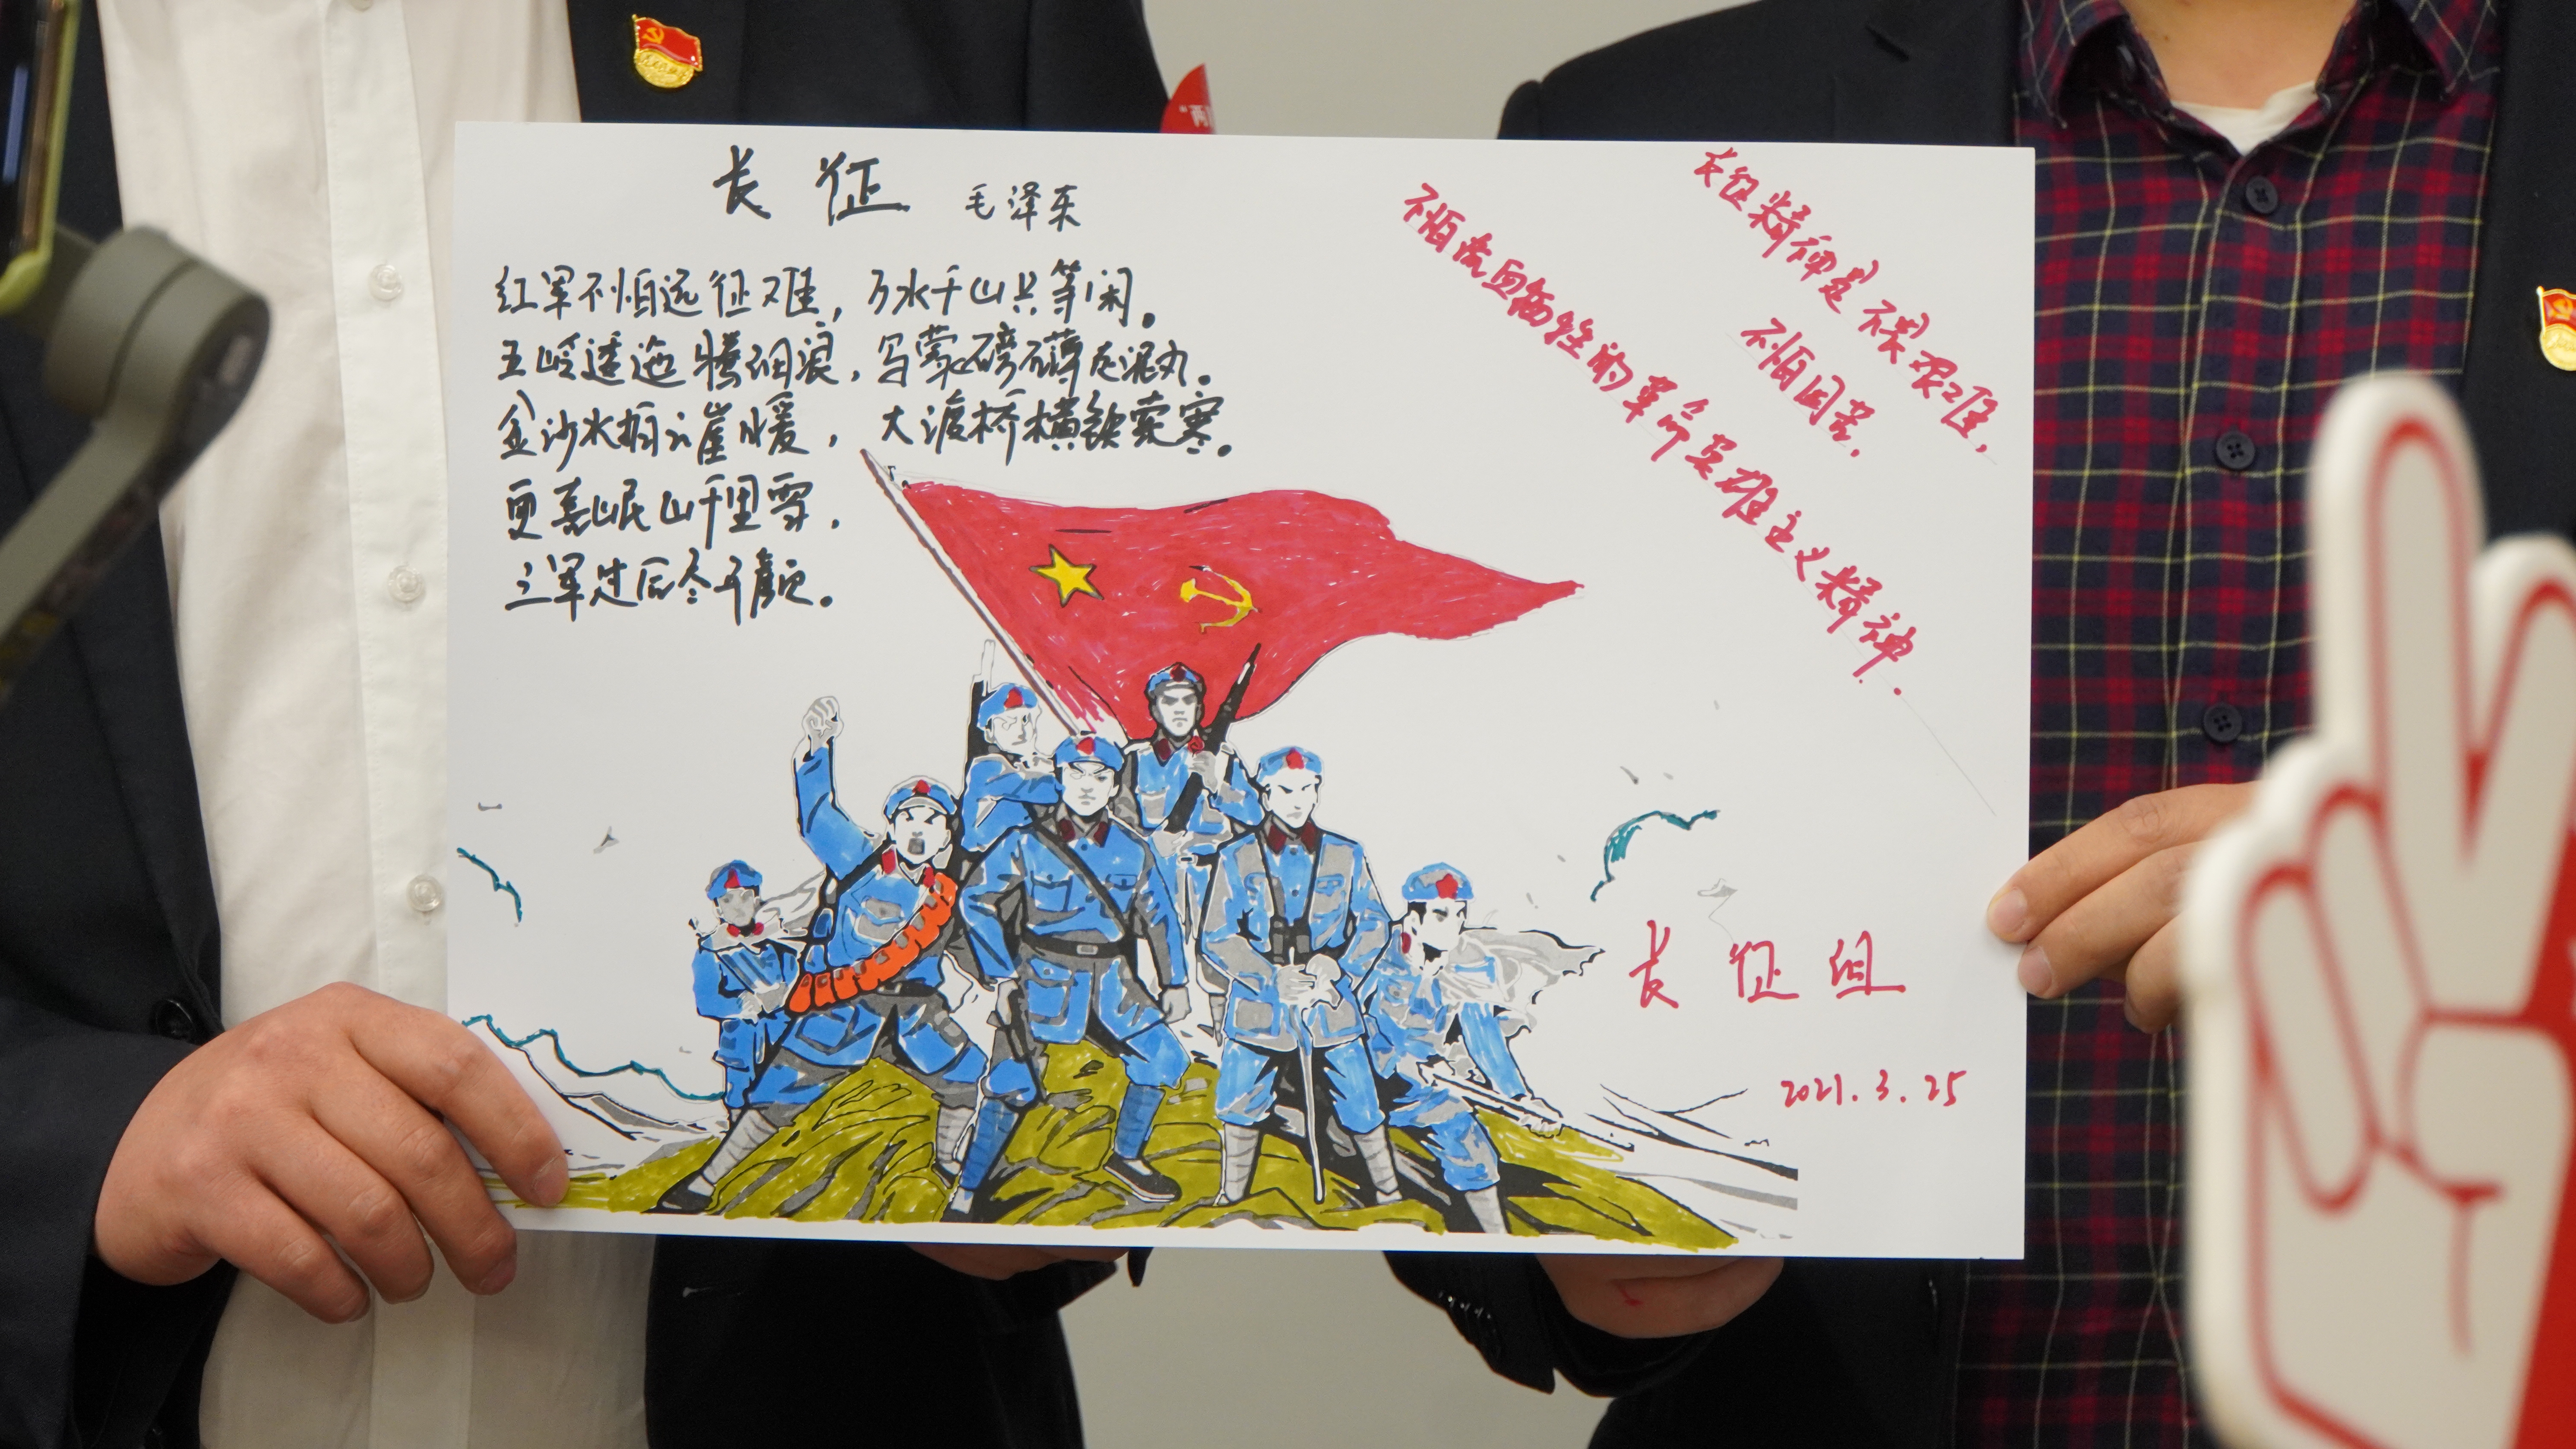 长征 毛泽东
红军不怕远征难，万水千山只等闲。
五岭逶迤腾细浪，乌蒙磅礴走泥丸。
金沙水拍云崖暖，大渡桥横铁索寒。
更喜岷山千里雪，
三军过后尽开颜。
长征精神是不畏艰难，
不怕困苦，
不怕流血牺牲的革命英雄主义精神.
长征组
2021.3.25